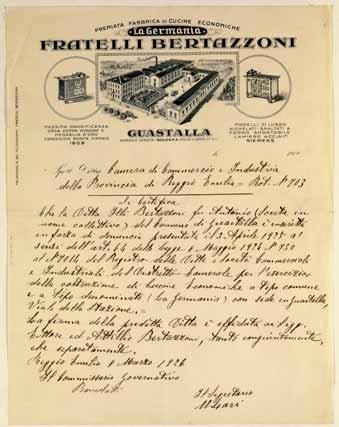 PREMIATA FABBRICA DI CUCINE ECONOMICHE
"La Germania"
FRATELLI BERTAZZONI
MASSIMA ONORIFICENZA
GRAN COPPA D'ONORE E
MEDAGLIA D'ORO
ESPOSIZIONE FIRENZE
1909
MODELLI DI LUSSO
NICHELATI SMALTATI A
FORNO SMONTABILE
LAMIERE ACCIAIO
SIEMENS
GUASTALLA
Camera di Commercio e Industria
della Provincia di Reggio Emilia - Prot. N° 703
Si Certifica
Che la Ditta F.lli Bertazzoni fu Antonio (Società in
nome collettivo) del Comune di Guastalla è inscritta
in forza di denuncia presentata il 3 Aprile 1925 ai
sensi dell'art. 64 della legge 8 Maggio 1924 N° 750
al N° 2014 del Registro delle Ditte e Società Commerciali
e Industriali del Distretto Camerale per l'esercizio
della costruzione di cucine economiche a tipo comune
e a tipo denominati (La Germania) con sede in Guastalla,
Viale della Stazione.
La firma della predetta Ditta è affidata ai Sigg.
Ettore ed Attilio Bertazzoni, tanto congiuntamente,
che separatamente.
Reggio Emilia 8 Marzo 1926
Il Commissario Governativo
Il Segretario